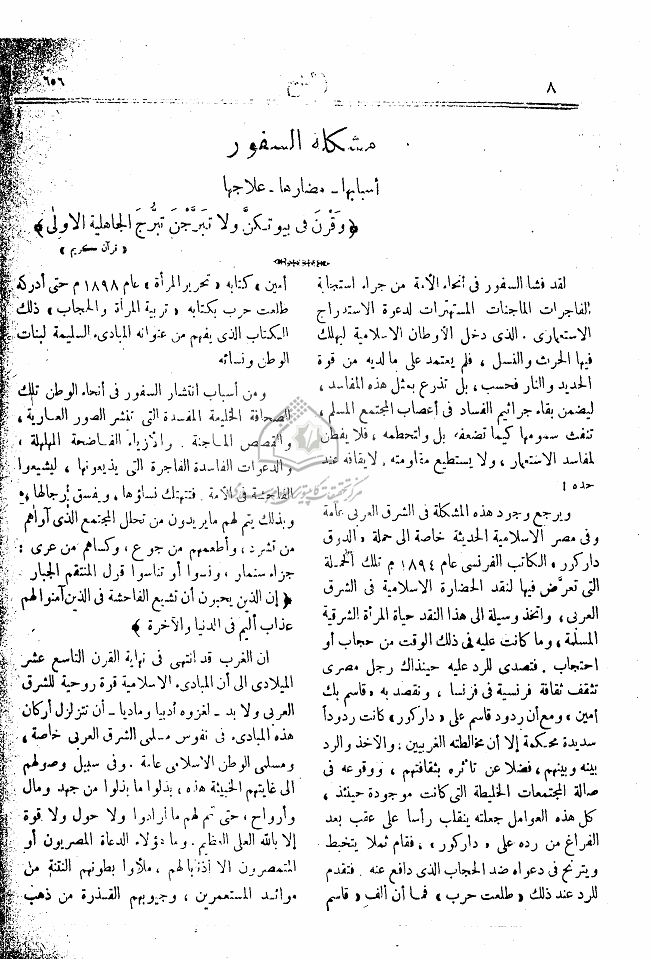 ٨
٦٥٦
مشكلة السفور
أسبابها - مضارها - علاجها
﴿ وَقَرْنَ فى بيوتكنَّ ولا تَبَرَّجْنَ تَبَرُّجَ الجاهلية الاولى ﴾
« قرآن كريم »
لقد فشا السفور فى أنحاء الأمة من جراء استجابة
الفاجرات الماجنات المستهترات لدعوة الاستدراج
الاستعمارى . الذى دخل الأوطان الاسلامية ليهلك
فيها الحرث والنسل ، فلم يعتمد على ما لديه من قوة
الحديد والنار فحسب ، بل تذرع بمثل هذه المفاسد ،
ليضمن بقاء جراثيم الفساد فى أعصاب المجتمع المسلم ،
تنفث سمومها كيما تضعفه بل وتحطمه ، فلا يفطن
لمفاسد الاستعمار ، ولا يستطيع مقاومته . لايقافه عند
حده !
ويرجع وجود هذه المشكلة فى الشرق العربى عامة
وفى مصر الاسلامية الحديثة خاصة الى حملة « الدوق
داركور » الكاتب الفرنسى عام ١٨٩٤ م تلك الحملة
التى تعرَّض فيها لنقد الحضارة الاسلامية فى الشرق
العربى ، واتخذ وسيلة الى هذا النقد حياة المرأة الشرقية
المسلمة ، وما كانت عليه فى ذلك الوقت من حجاب أو
احتجاب . فتصدى للرد عليه حينذاك رجل مصرى
تثقف ثقافة فرنسية فى فرنسا ، ونقصد به « قاسم بك
أمين » ومع أن ردود قاسم على « داركور » كانت ردوداً
سديدة محكمة إلا أن مخالطته الغربيين : والاخذ والرد
بينه وبينهم ، فضلا عن تأثره بثقافتهم ، ووقوعه فى
صالة المجتمعات الخليطة التى كانت موجودة حينئذ ،
كل هذه العوامل جعلته ينقلب رأسا على عقب بعد
الفراغ من رده على « داركور » ، فقام ثملا يتخبط
ويترنح فى دعواه ضد الحجاب الذى دافع عنه . فتقدم
للرد عند ذلك « طلعت حرب » فما أن ألف « قاسم
أمين » كتابه « تحرير المرأة » عام ١٨٩٨ م حتى أدركه
طلعت حرب بكتابه « تربية المرأة والحجاب » ذلك
الكتاب الذى يفهم من عنوانه المبادىء السليمة لبنات
الوطن ونسائه
ومن أسباب انتشار السفور فى أنحاء الوطن تلك
الصحافة الخليعة المفسدة التى تنشر الصور العارية ،
والقصص الماجنة . والأزياء الفاضحة المهلهلة ،
والدعوات الفاسدة الفاجرة التى يذيعونها ، ليشيعوا
الفاحشة فى الأمة . فتنهتك نساؤها ، ويفسق رجالها ،
وبذلك يتم لهم ما يريدون من تحلل المجتمع الذى آواهم
من تشرد ، وأطعمهم من جوع ، وكساهم من عرى :
جزاء سنمار ، ونسوا أو تناسوا قول المنتقم الجبار
﴿ إن الذين يحبون أن تشيع الفاحشة فى الذين آمنوا لهم
عذاب أليم فى الدنيا والآخرة ﴾
ان الغرب قد انتهى فى نهاية القرن التاسع عشر
الميلادى الى أن المبادىء الاسلامية قوة روحية للشرق
العربى ولا بد - لغزوه أدبيا وماديا - أن تتزلزل أركان
هذه المبادىء فى نفوس مسلمى الشرق العربى خاصة ،
ومسلمى الوطن الاسلامى عامة . وفى سبيل وصولهم
الى غايتهم الخبيثة هذه ، بذلوا ما بذلوا من جهد ومال
وأرواح ، حتى تم لهم ما أرادوا ولا حول ولا قوة
إلا بالله العلى العظيم . وما هؤلاء الدعاة المصريون أو
المتمصرون الا أذنابا لهم ، ملأوا بطونهم النتنة من
موائد المستعمرين ، وجيوبهم القذرة من ذهب